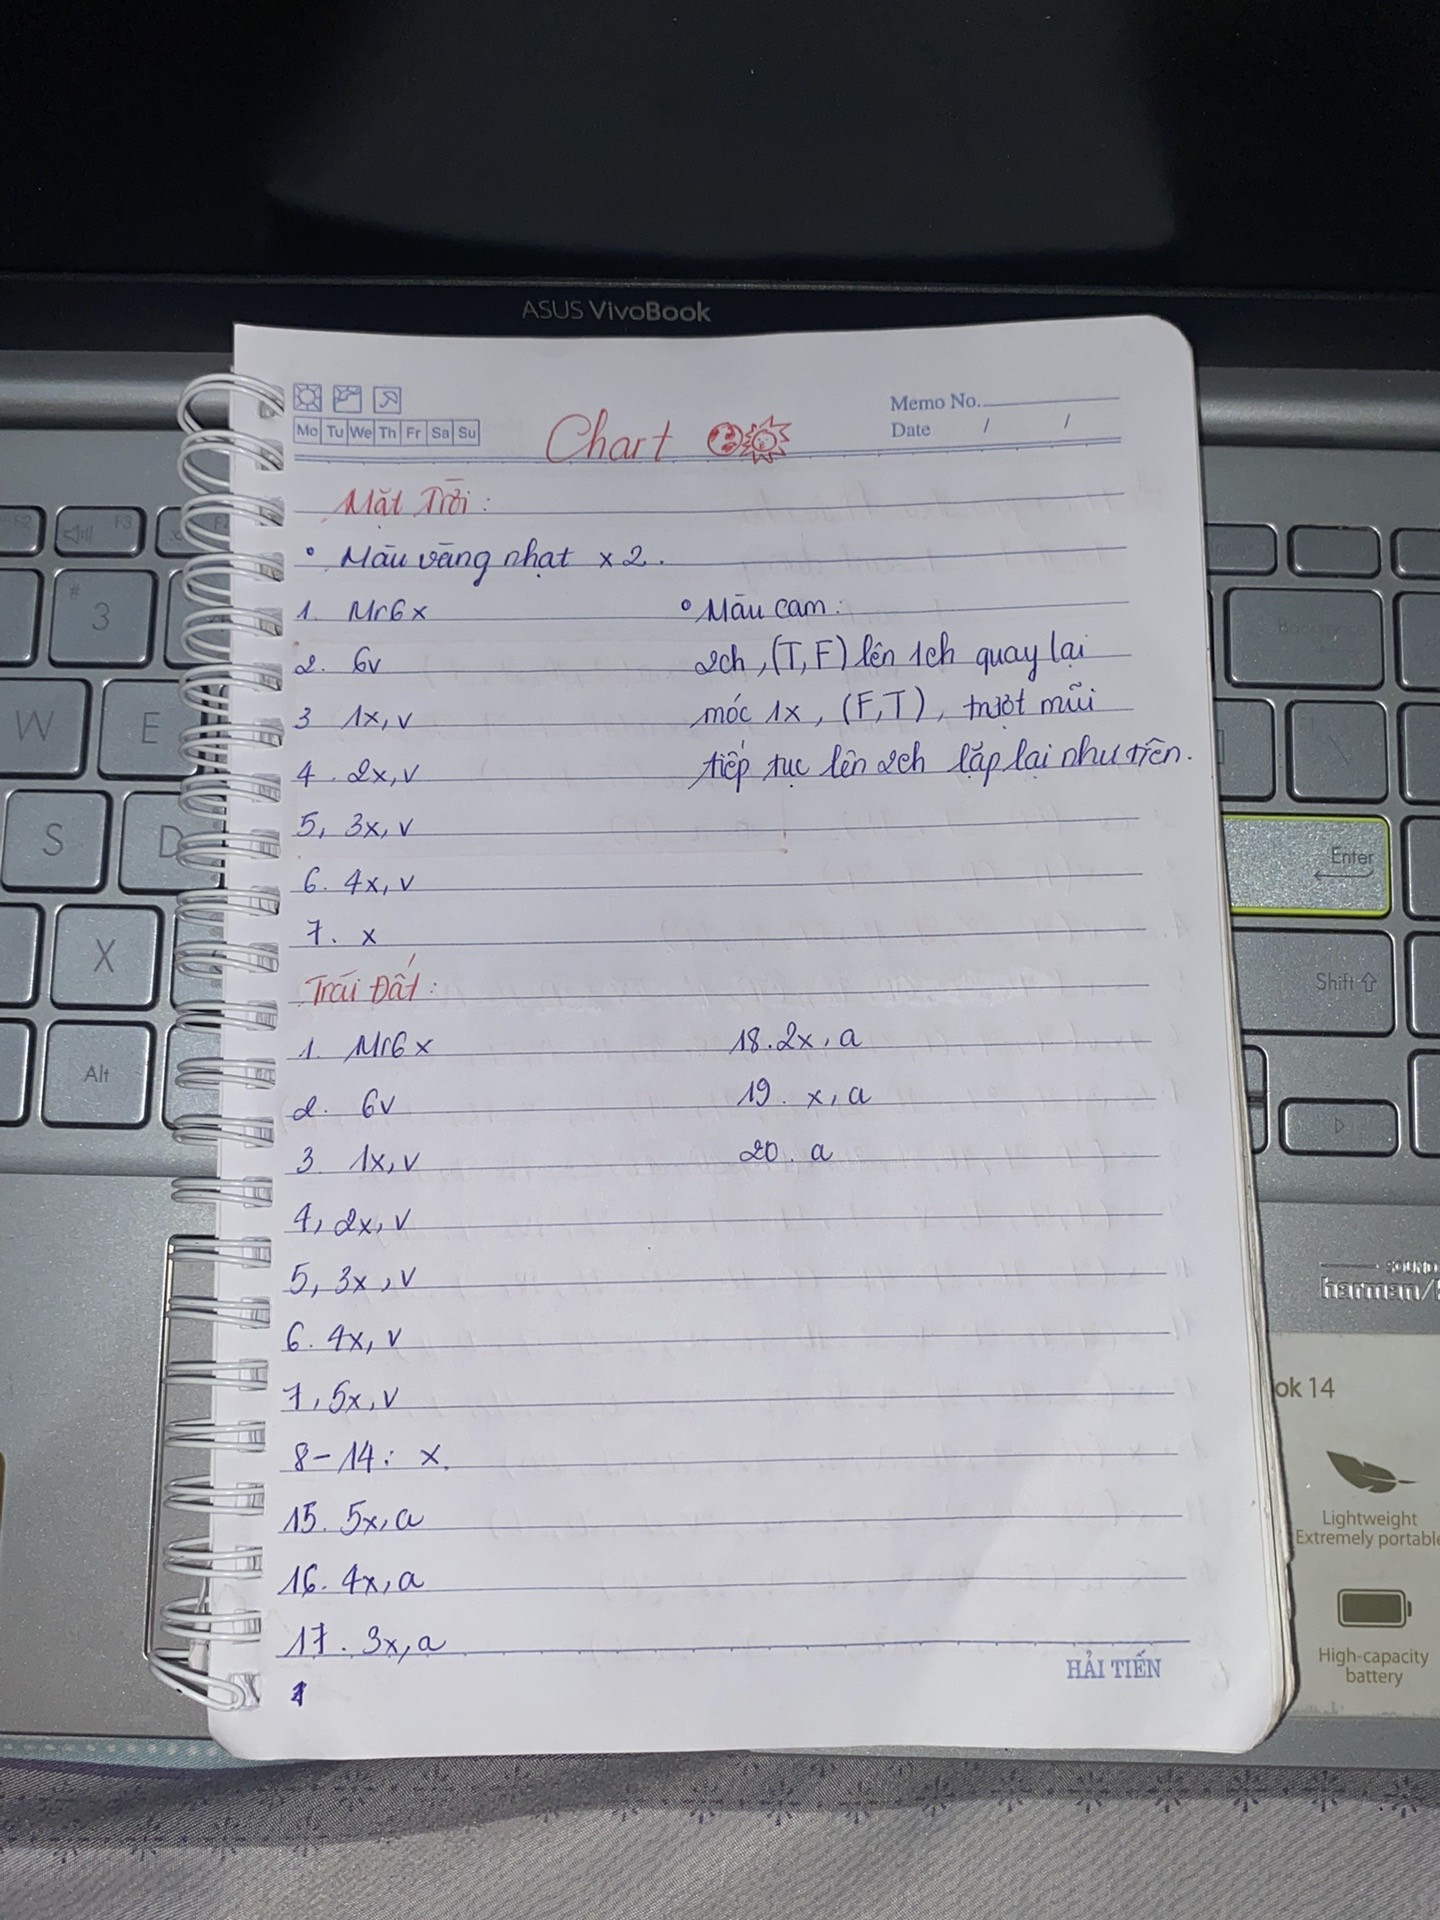 ASUS VivoBook
Memo No.
Mo Tu We Th Fr Sa Su
Date / /
Chart
Mặt Trời :
° Màu vàng nhạt x 2 .
1. Mr6x
2. 6v
3 1x, v
4 . 2x, v
5, 3x, v
6. 4x, v
7. x
° Màu cam :
2ch, (T, F) lên 1ch quay lại
móc 1x, (F,T), trượt mũi
tiếp tục lên 2ch lặp lại như trên.
Trái Đất :
1. Mr6x
2. 6v
3 1x, v
4, 2x, v
5, 3x, v
6. 4x, v
7, 5x, v
8 - 14 : x.
15. 5x, a
16. 4x, a
17. 3x, a
1
18. 2x, a
19. x, a
20. a
HẢI TIẾN
F3
#
3
W
E
S
D
X
Alt
Backspace
Enter
Shift
SOUND
harman/
ok 14
Lightweight
Extremely portable
High-capacity
battery